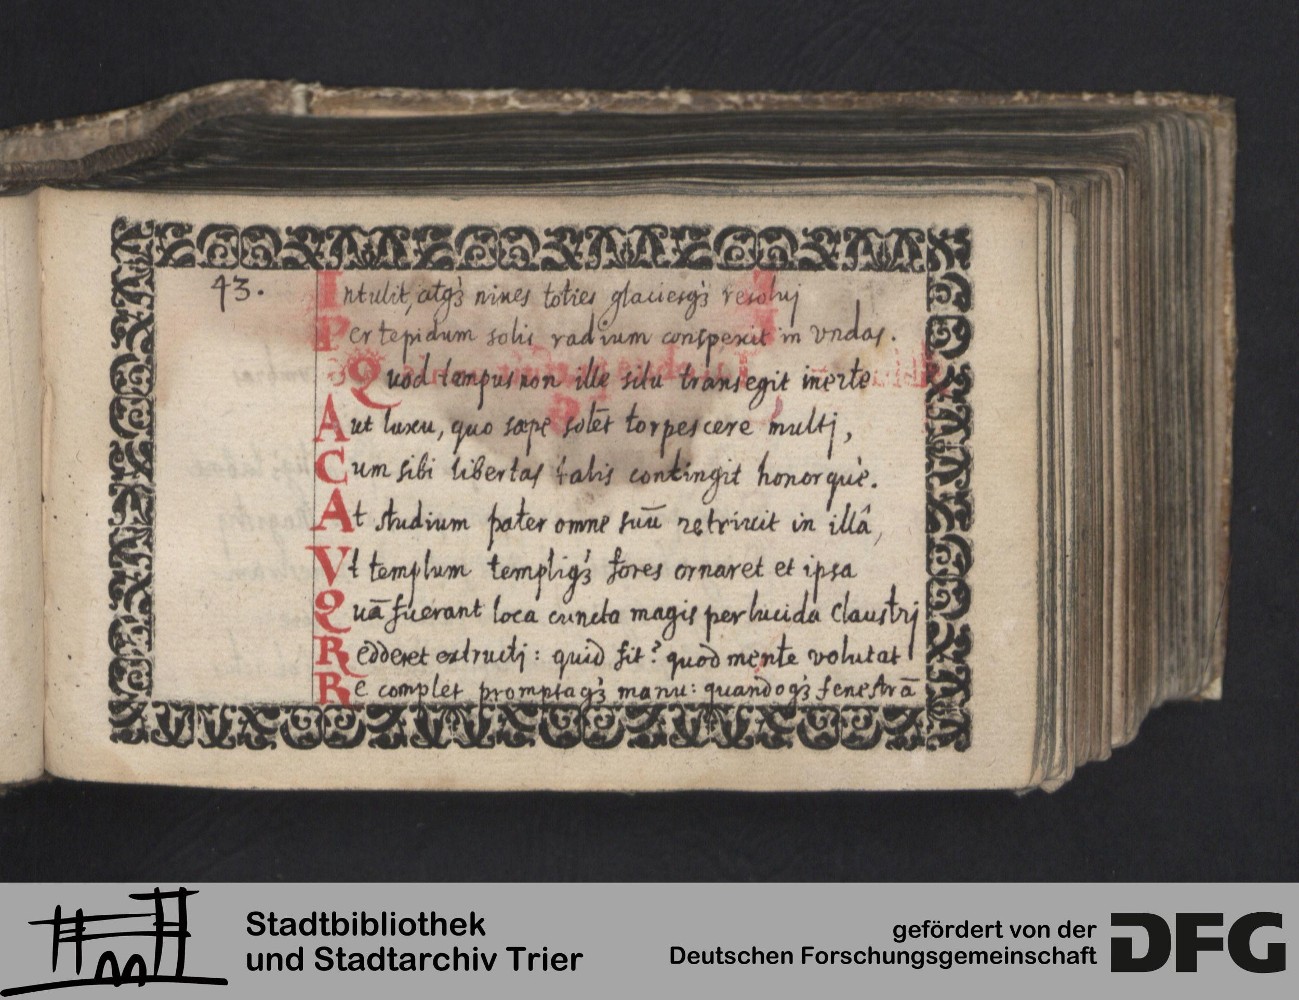 43.
Intulit, atq́ꝫ niues toties glaciesq́ꝫ resoluj
Per tepidum solis radium conspexit in vndas.
Quod tempus non ille situ transegit inerte
Aut luxu, quo sæpe solēt torpescere multj,
Cum sibi libertas talis contingit honorque.
At studium pater omne suū retrixit in illâ,
Vt templum templiq́ꝫ fores ornaret et ipsa
Quā fuerant loca cuncta magis perlucida Claustrj
Redderet extructj: quid sit? quod mente volutat
Re complet promptaq́ꝫ manu: quandoq́ꝫ fenestrā
Stadtbibliothek
und Stadtarchiv Trier
gefördert von der
Deutschen Forschungsgemeinschaft
DFG